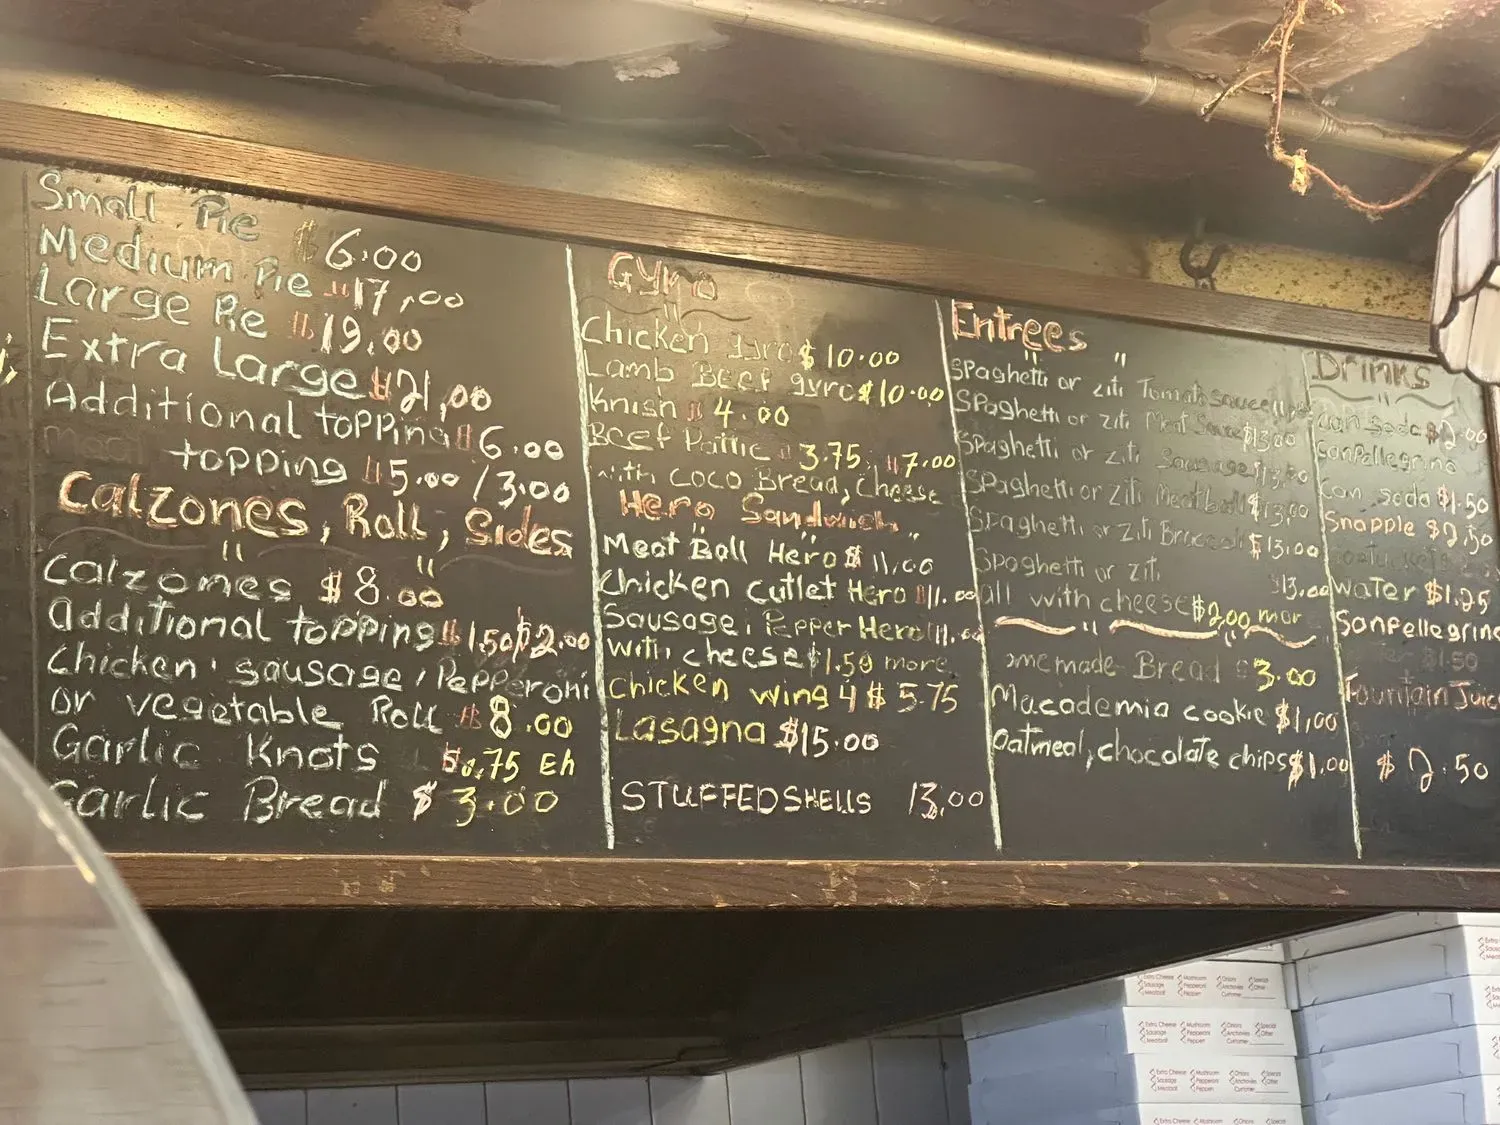 Small Pie $6.00
Medium Pie $17.00
Large Pie $19.00
Extra Large $21.00
Additional topping $6.00
topping $5.00/3.00
Calzones, Roll, Sides
Calzones $8.00
Additional topping $1.50/$2.00
Chicken, sausage, Pepperoni
or vegetable Roll $8.00
Garlic Knots $0.75 Eh
Garlic Bread $3.00
Gyro
Chicken gyro $10.00
Lamb Beef gyro $10.00
Knish $4.00
Beef Pattie $3.75, $7.00
with COCO Bread, Cheese
Hero Sandwich
Meat Ball Hero $11.00
Chicken cutlet Hero $11.00
Sausage, Pepper Hero $11.00
with cheese $1.50 more
Chicken wing 4 $5.75
Lasagna $15.00
STUFFED SHELLS 13.00
Entrees
Spaghetti or ziti Tomato sauce
Spaghetti or ziti Meat Sauce $13.00
Spaghetti or ziti Sausage $13.00
Spaghetti or ziti Meatball $13.00
Spaghetti or ziti Broccoli $13.00
Spaghetti or ziti
$13.00
all with cheese $2.00 mor
omemade Bread $3.00
Macadamia cookie $1.00
Oatmeal, chocolate chips $1.00
Drinks
can soda $2.00
SanPellegrino
Can soda $1.50
Snapple $2.50
Water $1.25
SanPellegrino
$1.50
Fountain Juic
$2.50
Extra Cheese Mushroom Onions Special
Sausage Pepperoni Anchovies Other
Meatball Peppers Customer
Extra Cheese Mushroom Onions Special
Sausage Pepperoni Anchovies Other
Meatball Peppers Customer
Extra Cheese Mushroom Onions Special
Sausage Pepperoni Anchovies Other
Meatball Peppers Customer